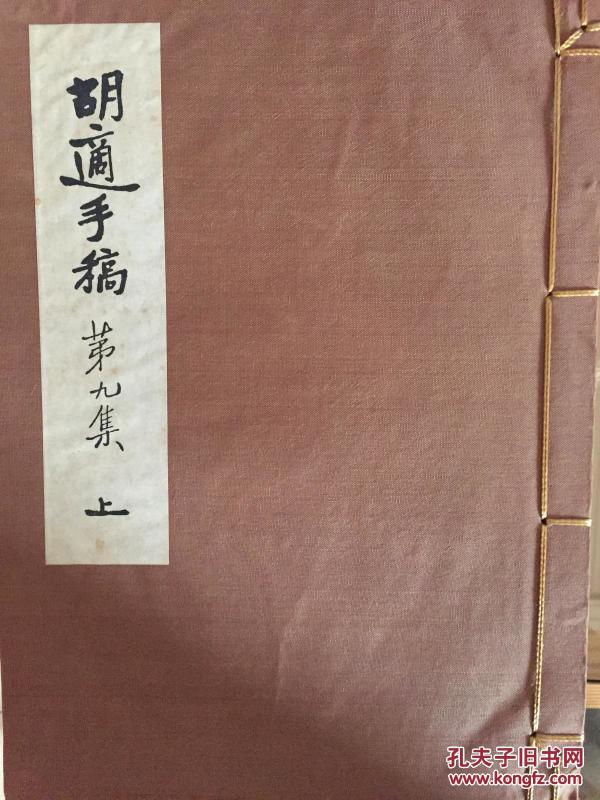 胡適手稿
第九集
上
孔夫子旧书网
www.kongfz.com